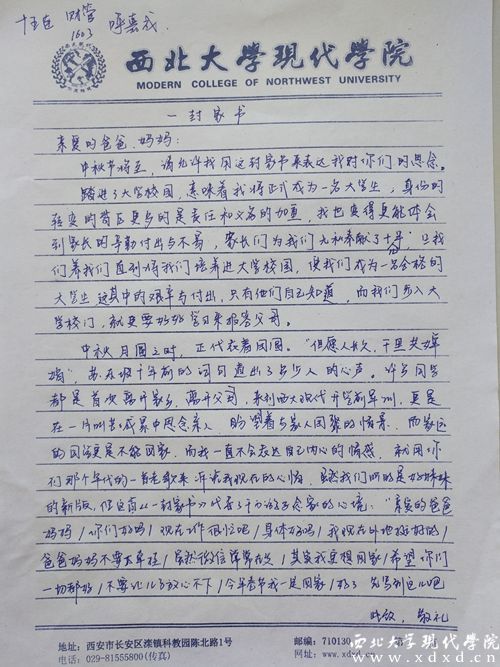 十五连 财管
1603 呼嘉文
西北大学现代学院
MODERN COLLEGE OF NORTHWEST UNIVERSITY
一封家书
亲爱的爸爸、妈妈:
中秋节将至,请允许我用这封家书来表达我对你们的思念。
踏进了大学校园,意味着我将正式成为一名大学生,身份的
转变的背后更多的是责任和义务的加重,我也变得更能体会
到家长的辛勤付出与不易,家长们为我们无私奉献了十年,从我
们养我们直到将我们培养进大学校园,使我们成为一名合格的
大学生这其中的艰辛与付出,只有他们自己知道,而我们步入大
学校门,就更要好好学习来报答父母。
中秋月圆之时,正代表着团圆。“但愿人长久,千里共婵
娟”,苏东坡千年前的词句道出了多少人的心声。许多同学
都是首次离开家乡,离开父母,来到西大现代开学前军训,更是
在一片训练成果中思念亲人,盼望着与家人团聚的情景,而家
的同学更是不能回家,而我一直不会表达自己内心的情感,就用你
们那个年代的一首老歌来诉说我现在的心情,虽然我们听的是
的新版,但这首《一封家书》代表了千万游子念家的心境:“亲爱的爸爸
妈妈/你们好吗/现在工作很忙吧/身体好吗/我现在外地挺好的/
爸爸妈妈不要太牵挂/虽然微信常常在发/其实我更想回家/希望你们
一切都好/不要让儿子放心不下/今年春节我一定回家/好了 先写到这儿吧
此致 敬礼
地址:西安市长安区滦镇科教园陈北路1号
电话:029-81555800(传真)
邮编:710130
西北大学现代学院
www.xdxd.cn